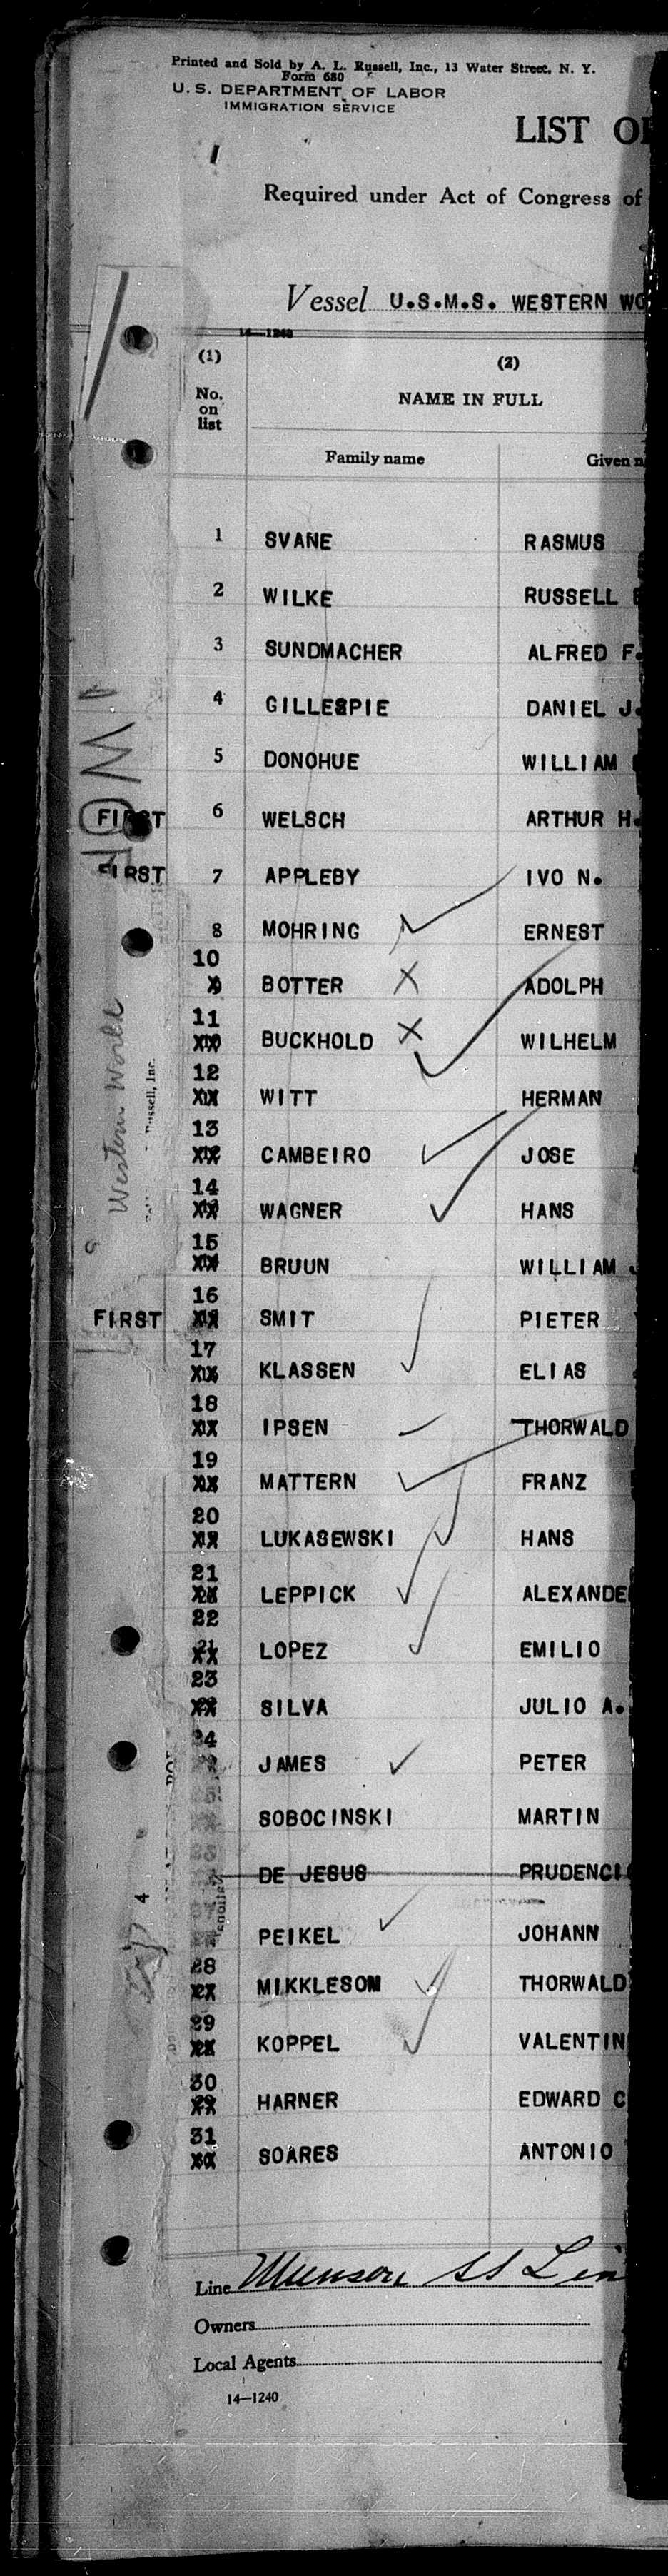 Printed and Sold by A. L. Russell, Inc., 13 Water Street, N. Y.
Form 680
U. S. DEPARTMENT OF LABOR
IMMIGRATION SERVICE
LIST O
Required under Act of Congress of
Vessel U.S.M.S. WESTERN WO
14—1240
(1) (2)
No. on list NAME IN FULL
Family name Given n
1 SVANE RASMUS
2 WILKE RUSSELL
3 SUNDMACHER ALFRED F.
4 GILLESPIE DANIEL J.
5 DONOHUE WILLIAM
FIRST 6 WELSCH ARTHUR H.
FIRST 7 APPLEBY IVO N.
8 MOHRING ERNEST
10 BOTTER ADOLPH
11 BUCKHOLD WILHELM
12 WITT HERMAN
13 CAMBEIRO JOSE
14 WAGNER HANS
15 BRUUN WILLIAM
FIRST 16 SMIT PIETER
17 KLASSEN ELIAS
18 IPSEN THORWALD
19 MATTERN FRANZ
20 LUKASEWSKI HANS
21 LEPPICK ALEXANDE
22 LOPEZ EMILIO
23 SILVA JULIO A.
24 JAMES PETER
SOBOCINSKI MARTIN
DE JESUS PRUDENCI
PEIKEL JOHANN
28 MIKKLESOM THORWALD
29 KOPPEL VALENTIN
30 HARNER EDWARD C
31 SOARES ANTONIO
Western World
Line Munson SS Lin
Owners
Local Agents
14—1240